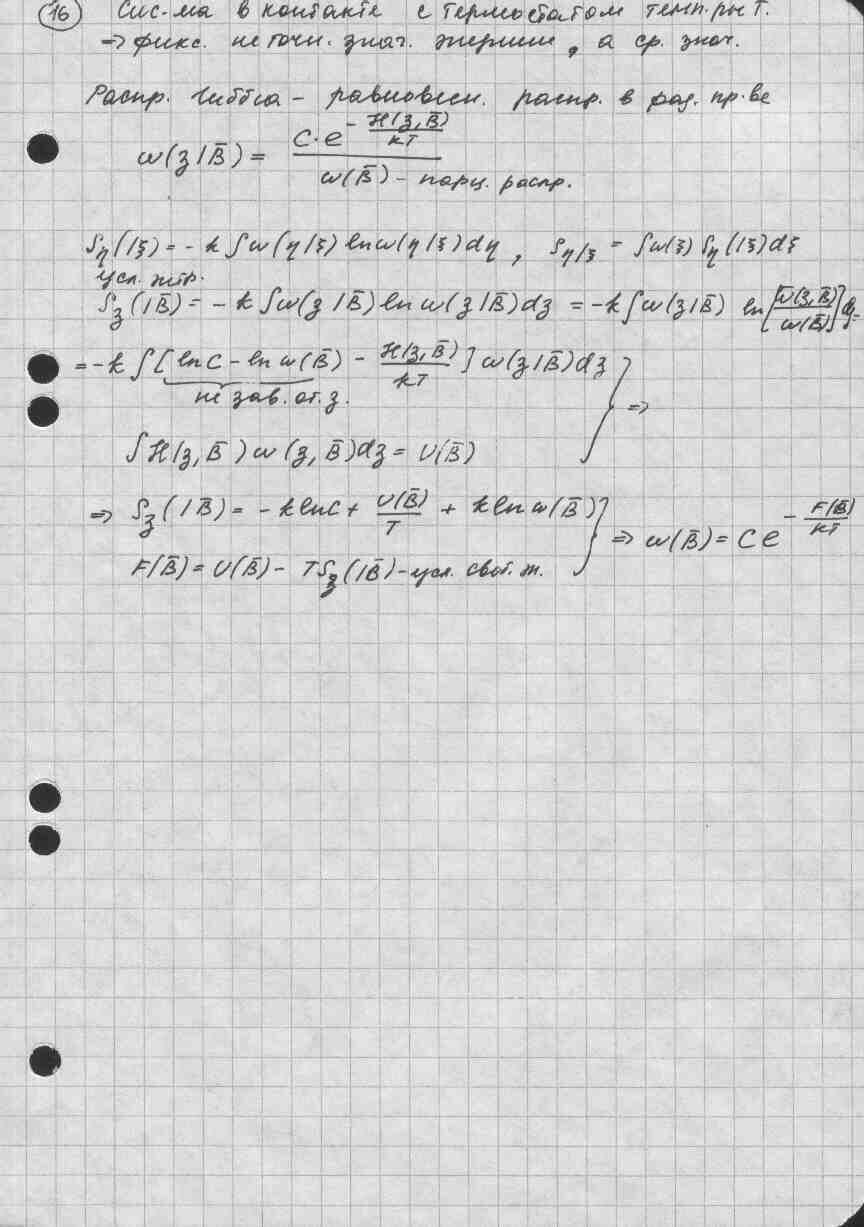 16 Сис-ма в контакте с термостатом темп-ры T.
⇒ фикс. не точн. знач. энергии, а ср. знач.
Распр. Гиббса – равновесн. распр. в фаз. пр-ве
w(z|B̄) = C·e^{-H(z,B̄)/kT} / w(B̄) – парц. распр.
S_η(|ξ) = -k∫w(η|ξ) ln w(η|ξ)dη, S_{η|ξ} = ∫w(ξ) S_η(|ξ)dξ
усл. энтр.
S_z(|B̄) = -k∫w(z|B̄) ln w(z|B̄)dz = -k∫w(z|B̄) ln[w(z,B̄)/w(B̄)]dz =
= -k∫[ln C - ln w(B̄) - H(z,B̄)/kT] w(z|B̄)dz
не зав. от z.
∫H(z,B̄)w(z,B̄)dz = U(B̄) } ⇒
⇒ S_z(|B̄) = -k ln C + U(B̄)/T + k ln w(B̄)
F(B̄) = U(B̄) - TS_z(|B̄) – усл. своб. эн. } ⇒ w(B̄) = C e^{-F(B̄)/kT}